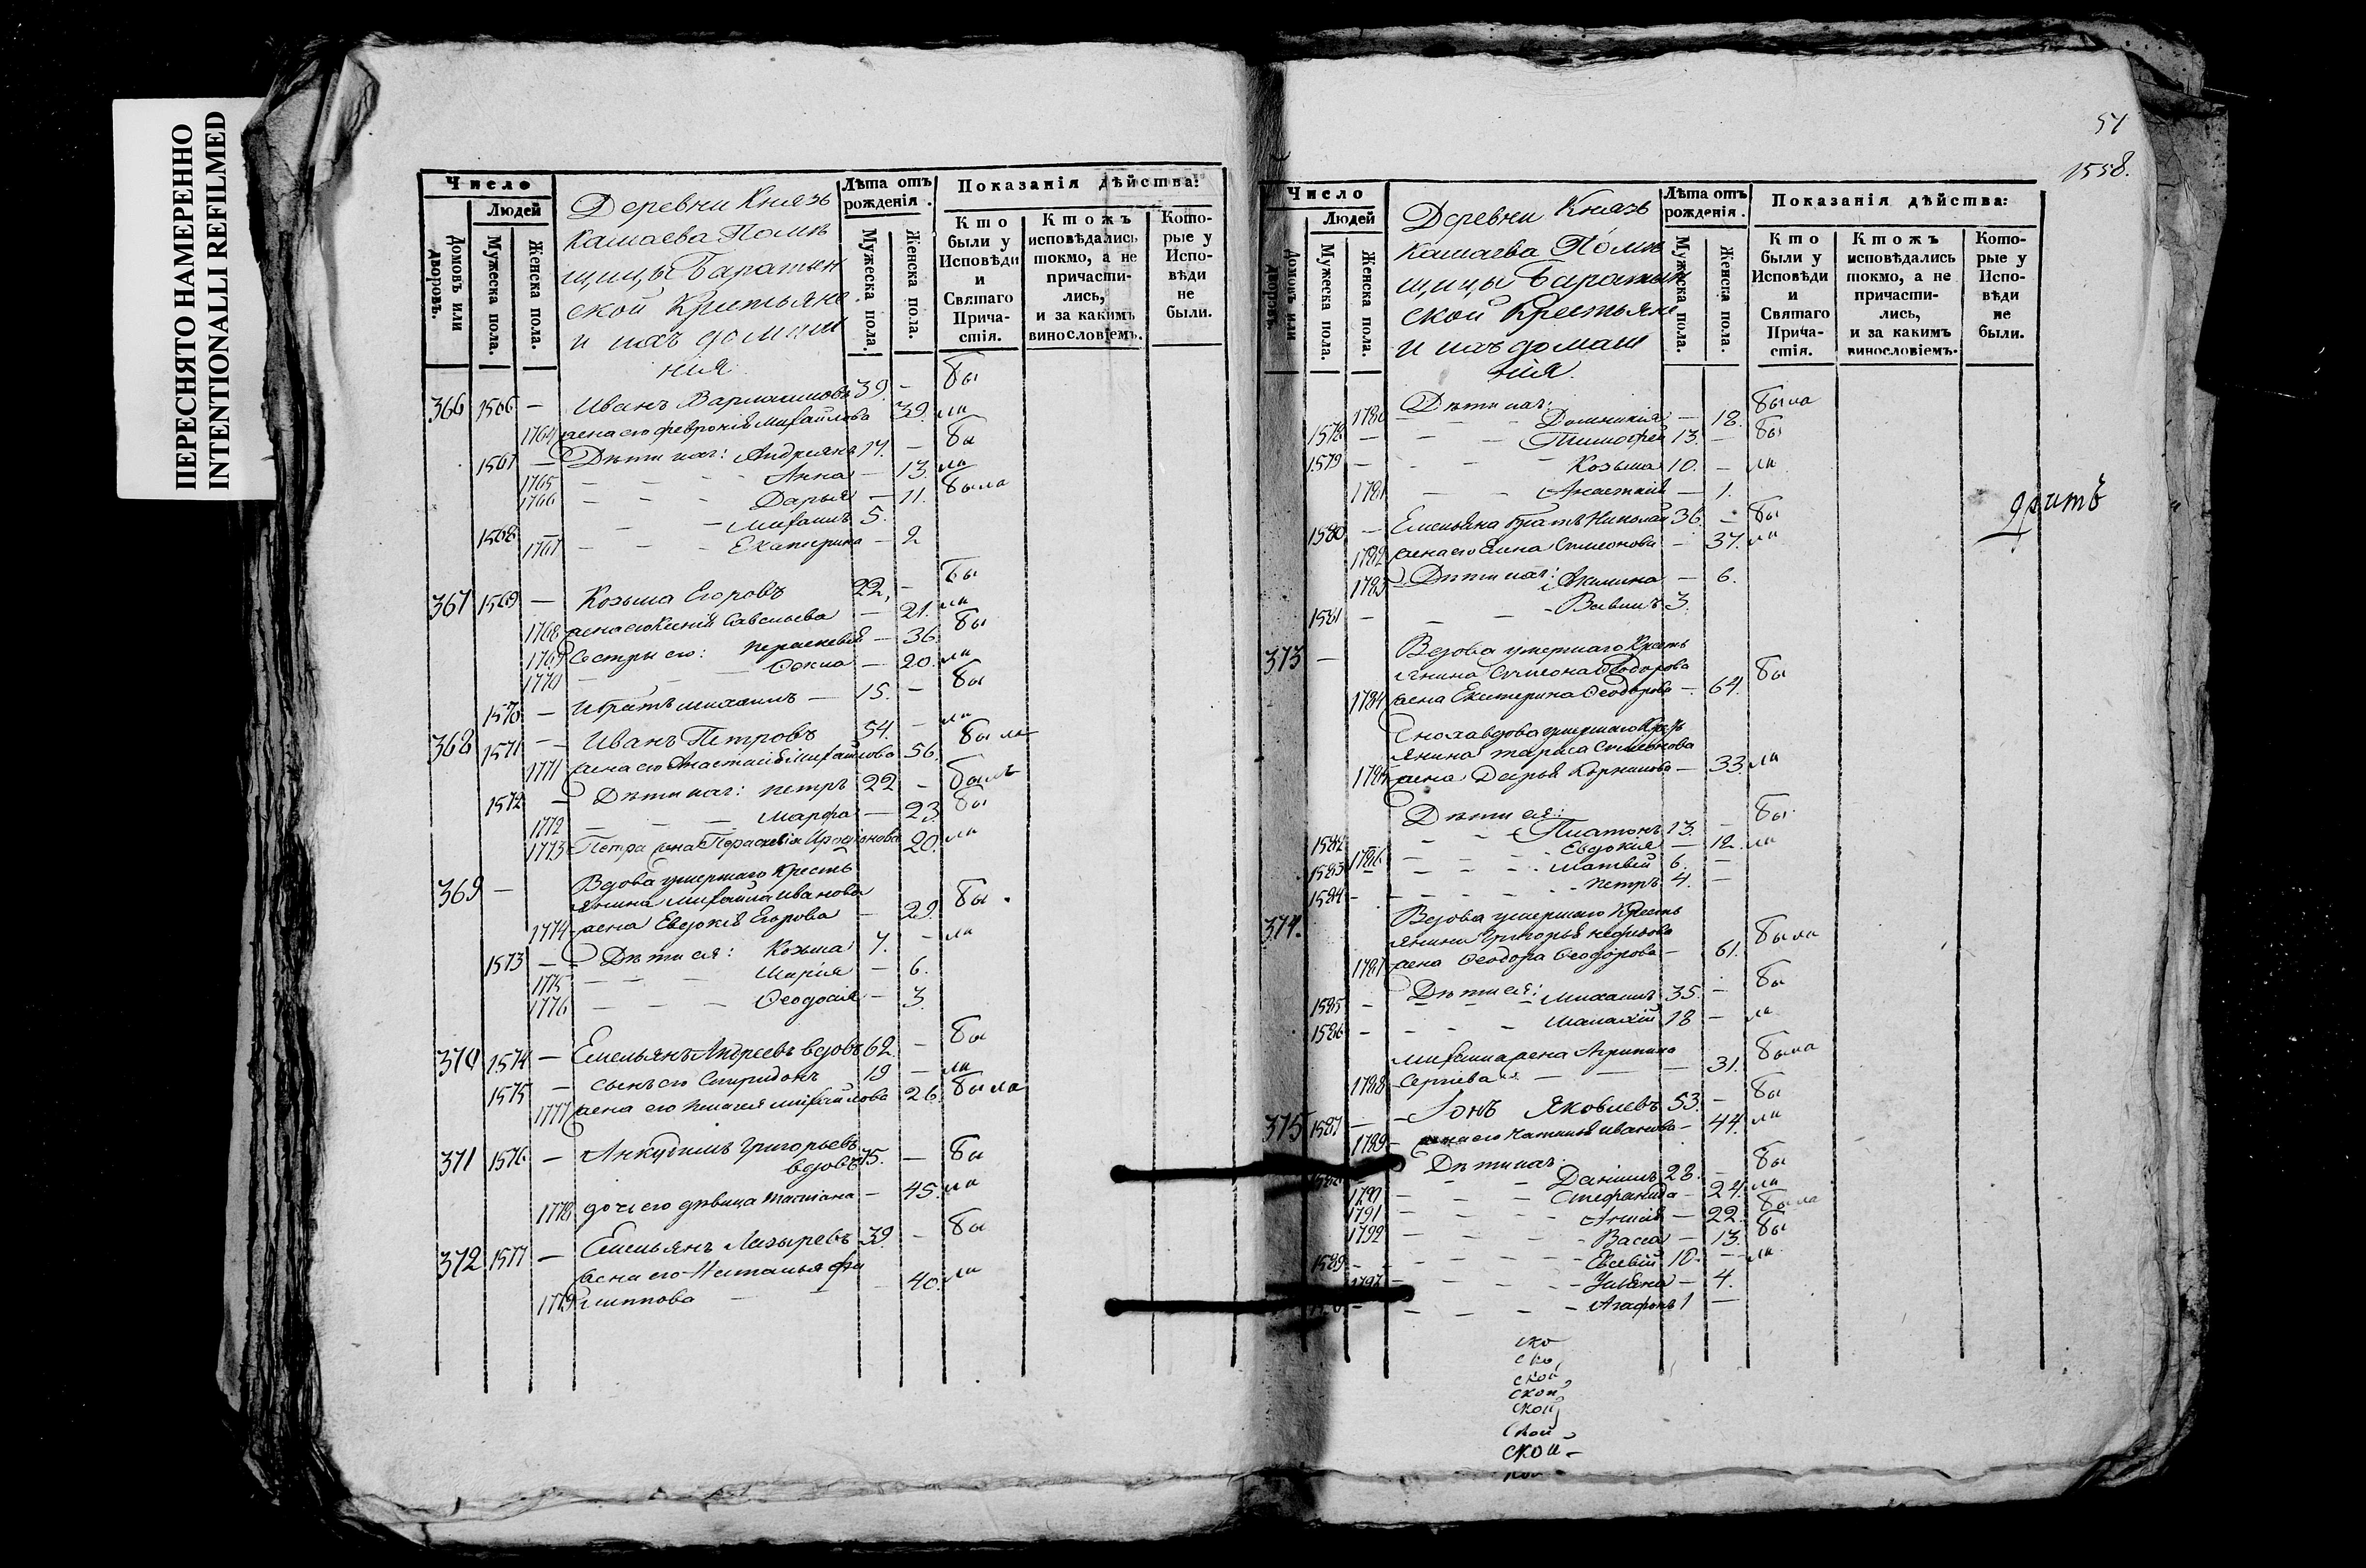 ПЕРЕСНЯТО НАМЕРЕННО
INTENTIONALLI REFILMED
Число
Людей
Домовъ или дворовъ.
Мужеска пола.
Женска пола.
Деревни Князь
Камаева Помѣ
щицы Баратын
ской Крестьяне
и ихъ домаш
нія
Лѣта отъ рожденія.
Мужеска пола.
Женска пола.
Показанія дѣйства:
Кто были у Исповѣди и Святаго Прича-стія.
Ктожъ исповѣдались токмо, а не причасти-лись, и за какимъ винословіемъ.
Кото-рые у Испо-вѣди не были.
366 1566 — Иванъ 39. — бы
1764 жена его Феврония Михайлова 39. ли
1567 — Дѣти ихъ: Андреянъ 14. — бы
1765 — Анна — 13. ли
1766 — Дарья — 11. была
1568 — Михаилъ 5.
1767 — Екатерина — 2
367 1569 — Козьма Егоровъ 22. — бы
1768 жена его Ксения Савельева — 21. ли
1769 Сестры его: Параскевия — 36. бы
1770 — Фекла — 20. ли
1570 — И братъ Михаилъ — 15. — бы
368 1571 — Иванъ Петровъ 54. — ли
1771 жена его Анастасия Михайлова 56. была
1572 — Дѣти ихъ: Петръ 22 — былъ
1772 — Марфа — 23. бы
1773 Петра жена Параскевия 20. ли
369 — Вдова умершаго Кресть
янина Михайла Иванова
1774 жена Евдокия Егорова — 29. бы
1573 — Дѣти ея: Козьма 7. — ли
1775 — Мария — 6.
1776 — Феодосия — 3.
370 1574 — Емельянъ Андреевъ вдовъ 62. — бы
1575 — сынъ его Спиридонъ 19 — ли
1777 жена его Пелагея Михайлова 26. была
371 1576 — Анкудимъ Григорьевъ
вдовъ 75. — бы
1778 дочь его дѣвица Татиана — 45. ли
372 1577 — Емельянъ Лазаревъ 39. — бы
жена его Наталья Фи
1779 липпова — 40. ли
54
1558.
Число
Людей
Домовъ или дворовъ.
Мужеска пола.
Женска пола.
Деревни Князь
Камаева Помѣ
щицы Баратын
ской Крестьяне
и ихъ домаш
нія.
Лѣта отъ рожденія.
Мужеска пола.
Женска пола.
Показанія дѣйства:
Кто были у Исповѣди и Святаго Прича-стія.
Ктожъ исповѣдались токмо, а не причасти-лись, и за какимъ винословіемъ.
Кото-рые у Испо-вѣди не были.
Дѣти ихъ:
1780 — Домникия — 18. была
1578 — Тимофей 13. — бы
1579 — Козьма 10. — ли
1781 — Анастасия — 1.
1580 — Емельяна братъ Николай 36. — бы
1782 жена его Анна Симеонова — 37. ли
1783 — Дѣти ихъ: Акилина — 6.
1581 — Вавилъ 3.
373 — Вдова умершаго Кресть
янина Симеона Феодорова
1784 жена Екатерина Феодорова — 64. бы
Сноха вдова умершаго Кресть
янина Тараса Симеонова
1785 жена Дарья — 33. ли
Дѣти ея:
1582 — Платонъ 13. — бы
1786 — Евдокия — 12. ли
1583 — Матвѣй 6. —
1584 — Петръ 4. —
374. Вдова умершаго Кресть
янина Григорья
1787 жена Феодора Феодорова — 61. была
1585 — Дѣти ея: Михаилъ 35. — бы
1586 — Малахий 18 — ли
Михаила жена Агрипина
1788 Сергиева — 31. была
375 1587 — Іонъ Яковлевъ 53. — бы
1789 — жена его Наталья Иванова — 44. ли
Дѣти ихъ:
1588 — Даніилъ 28. — бы
1790 — Стефанида — 24. ли
1791 — Агния — 22. была
1792 — Васса — 13. бы
1589 — Евсевий 10. — ли
1793 — Ульяна — 4.
— Агафонъ 1 —
ско
ско,
скои
скои
скои
скои
скои —
кои